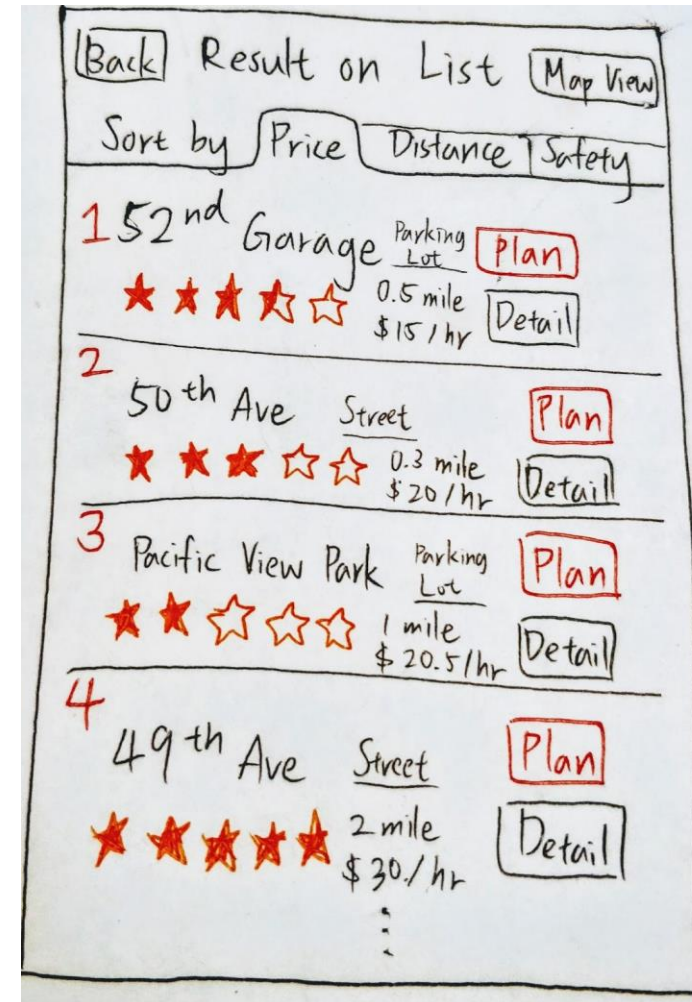 Back Result on List Map View
Sort by Price Distance Safety
1 52nd Garage Parking Lot Plan
0.5 mile
$15/hr Detail
2
50th Ave Street Plan
0.3 mile
$20/hr Detail
3
Pacific View Park Parking Lot Plan
1 mile
$20.5/hr Detail
4
49th Ave Street Plan
2 mile
$30./hr Detail